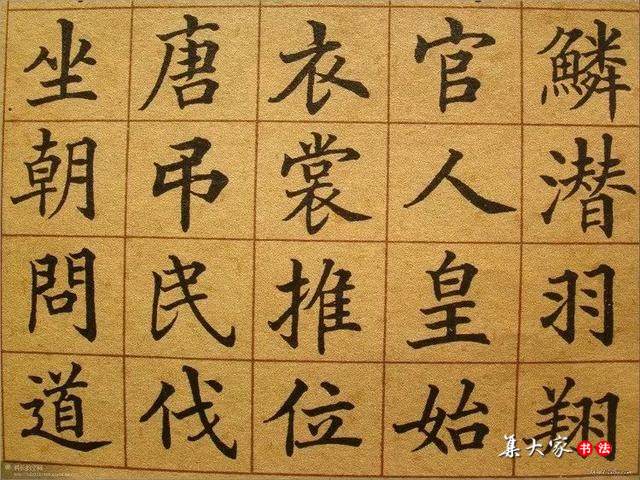 鱗潛羽翔
官人皇始
衣裳推位
唐弔民伐
坐朝問道
集大家书法